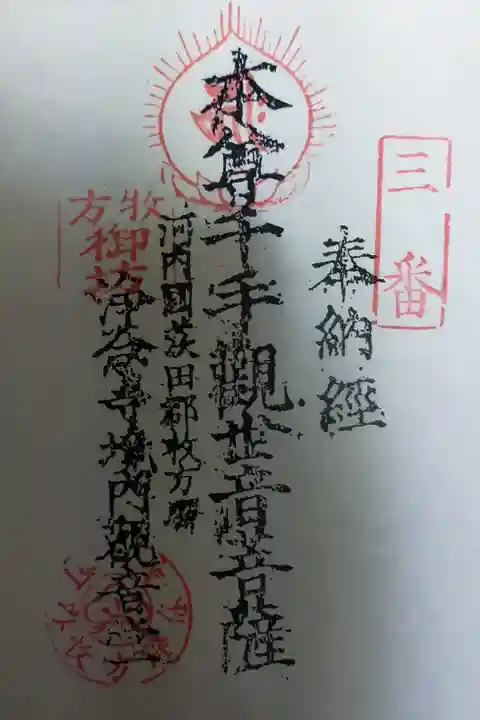 三番
奉納經
本尊千手觀世音菩薩
河内國茨田郡枚方驛
牧方
御坊
浄念寺境内觀音堂